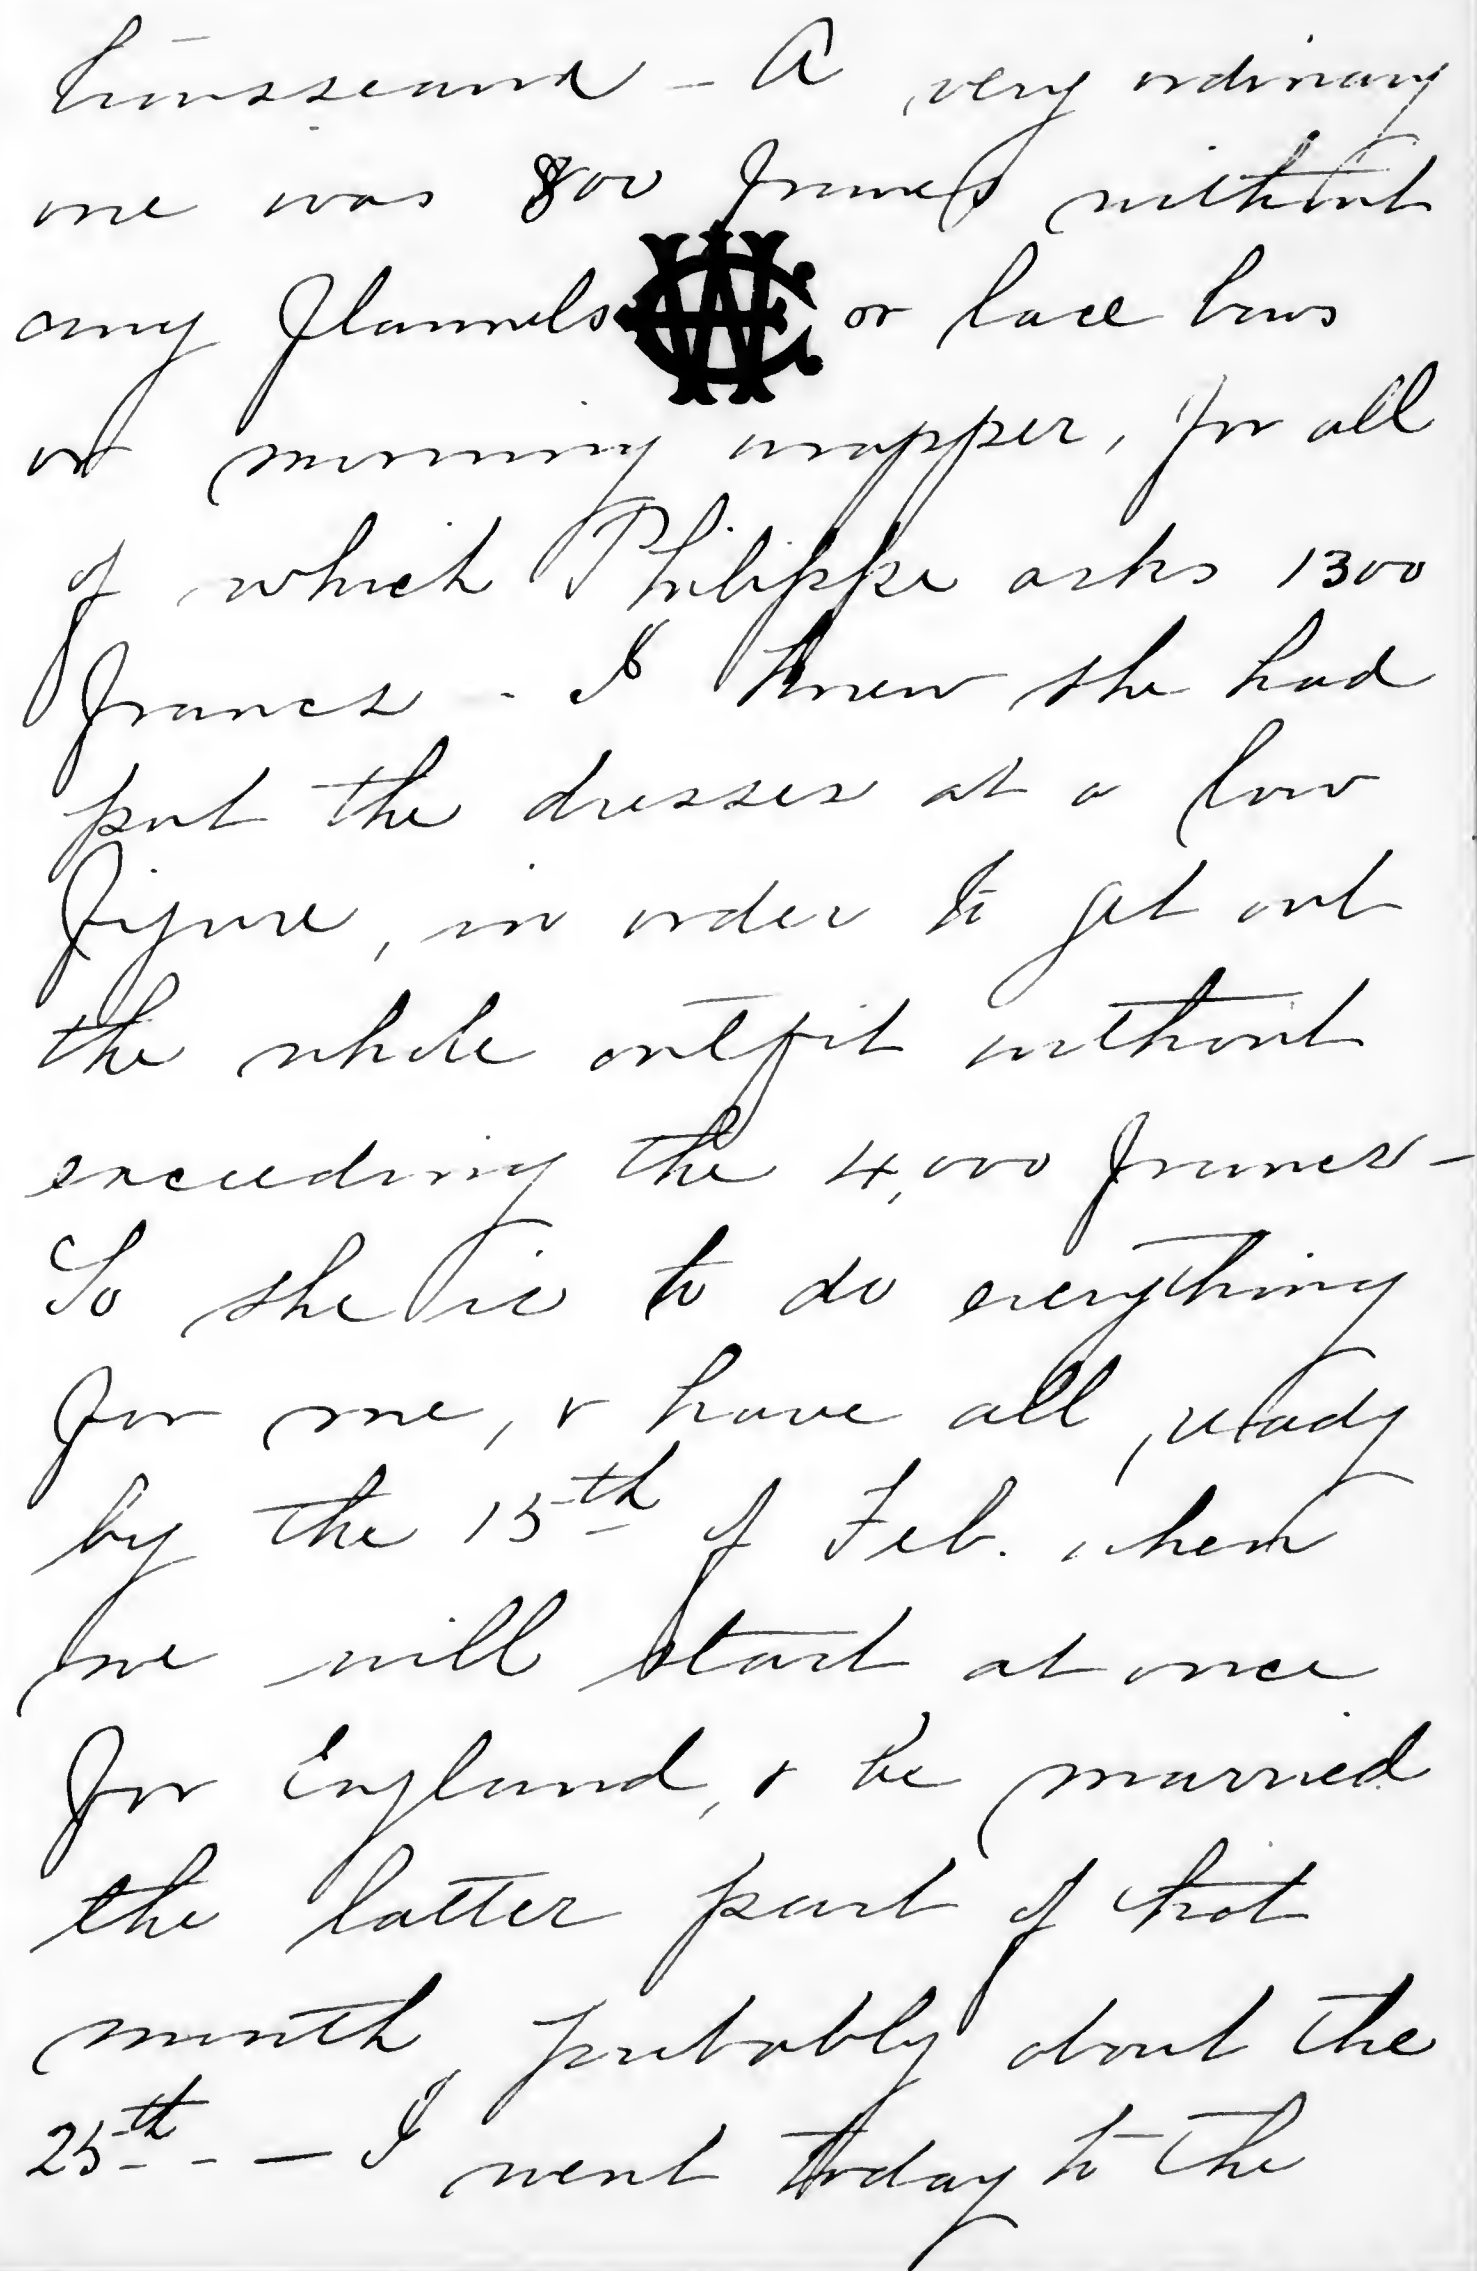 trousseau - A very ordinary
one was 800 francs without
any flannels or lace bows
or morning wrapper, for all
of which Philippe asks 1300
francs - I knew she had
put the dresses at a low
figure, in order to get out
the whole outfit without
exceeding the 4,000 francs -
So she is to do everything
for me, & have all ready
by the 15th of Feb. when
we will start at once
for England, & be married
the latter part of that
month, probably about the
25th - - I went today to the